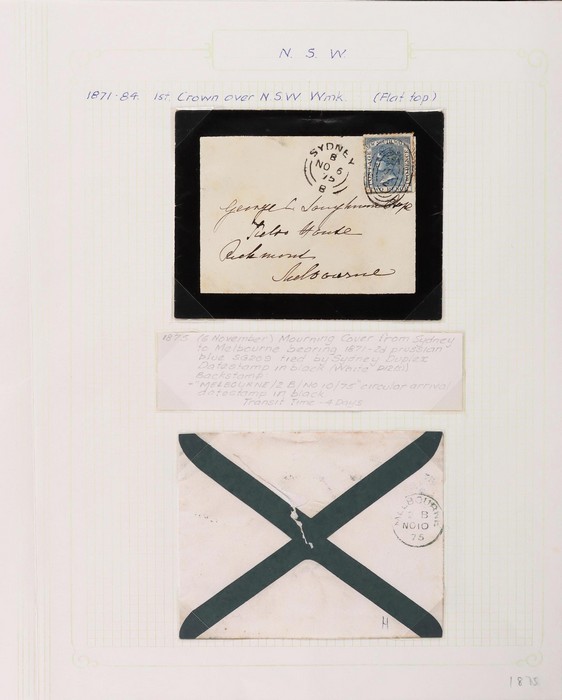 N. S. W.
1871-84. 1st. Crown over N.S.W. Wmk. (Flat top)
SYDNEY
B
NO 6
75
8
George
House
Richmond
Melbourne
1875. (6 November) Mourning Cover from Sydney
to Melbourne bearing 1871- 2d prussian
blue tied by Sydney Duplex
Datestamp in black (White
Backstamp
- "MELBOURNE/2 B/NO 10/75" circular arrival
datestamp in black.
Transit Time - 4 Days
MELBOURNE
2 B
NO 10
75
H
1875